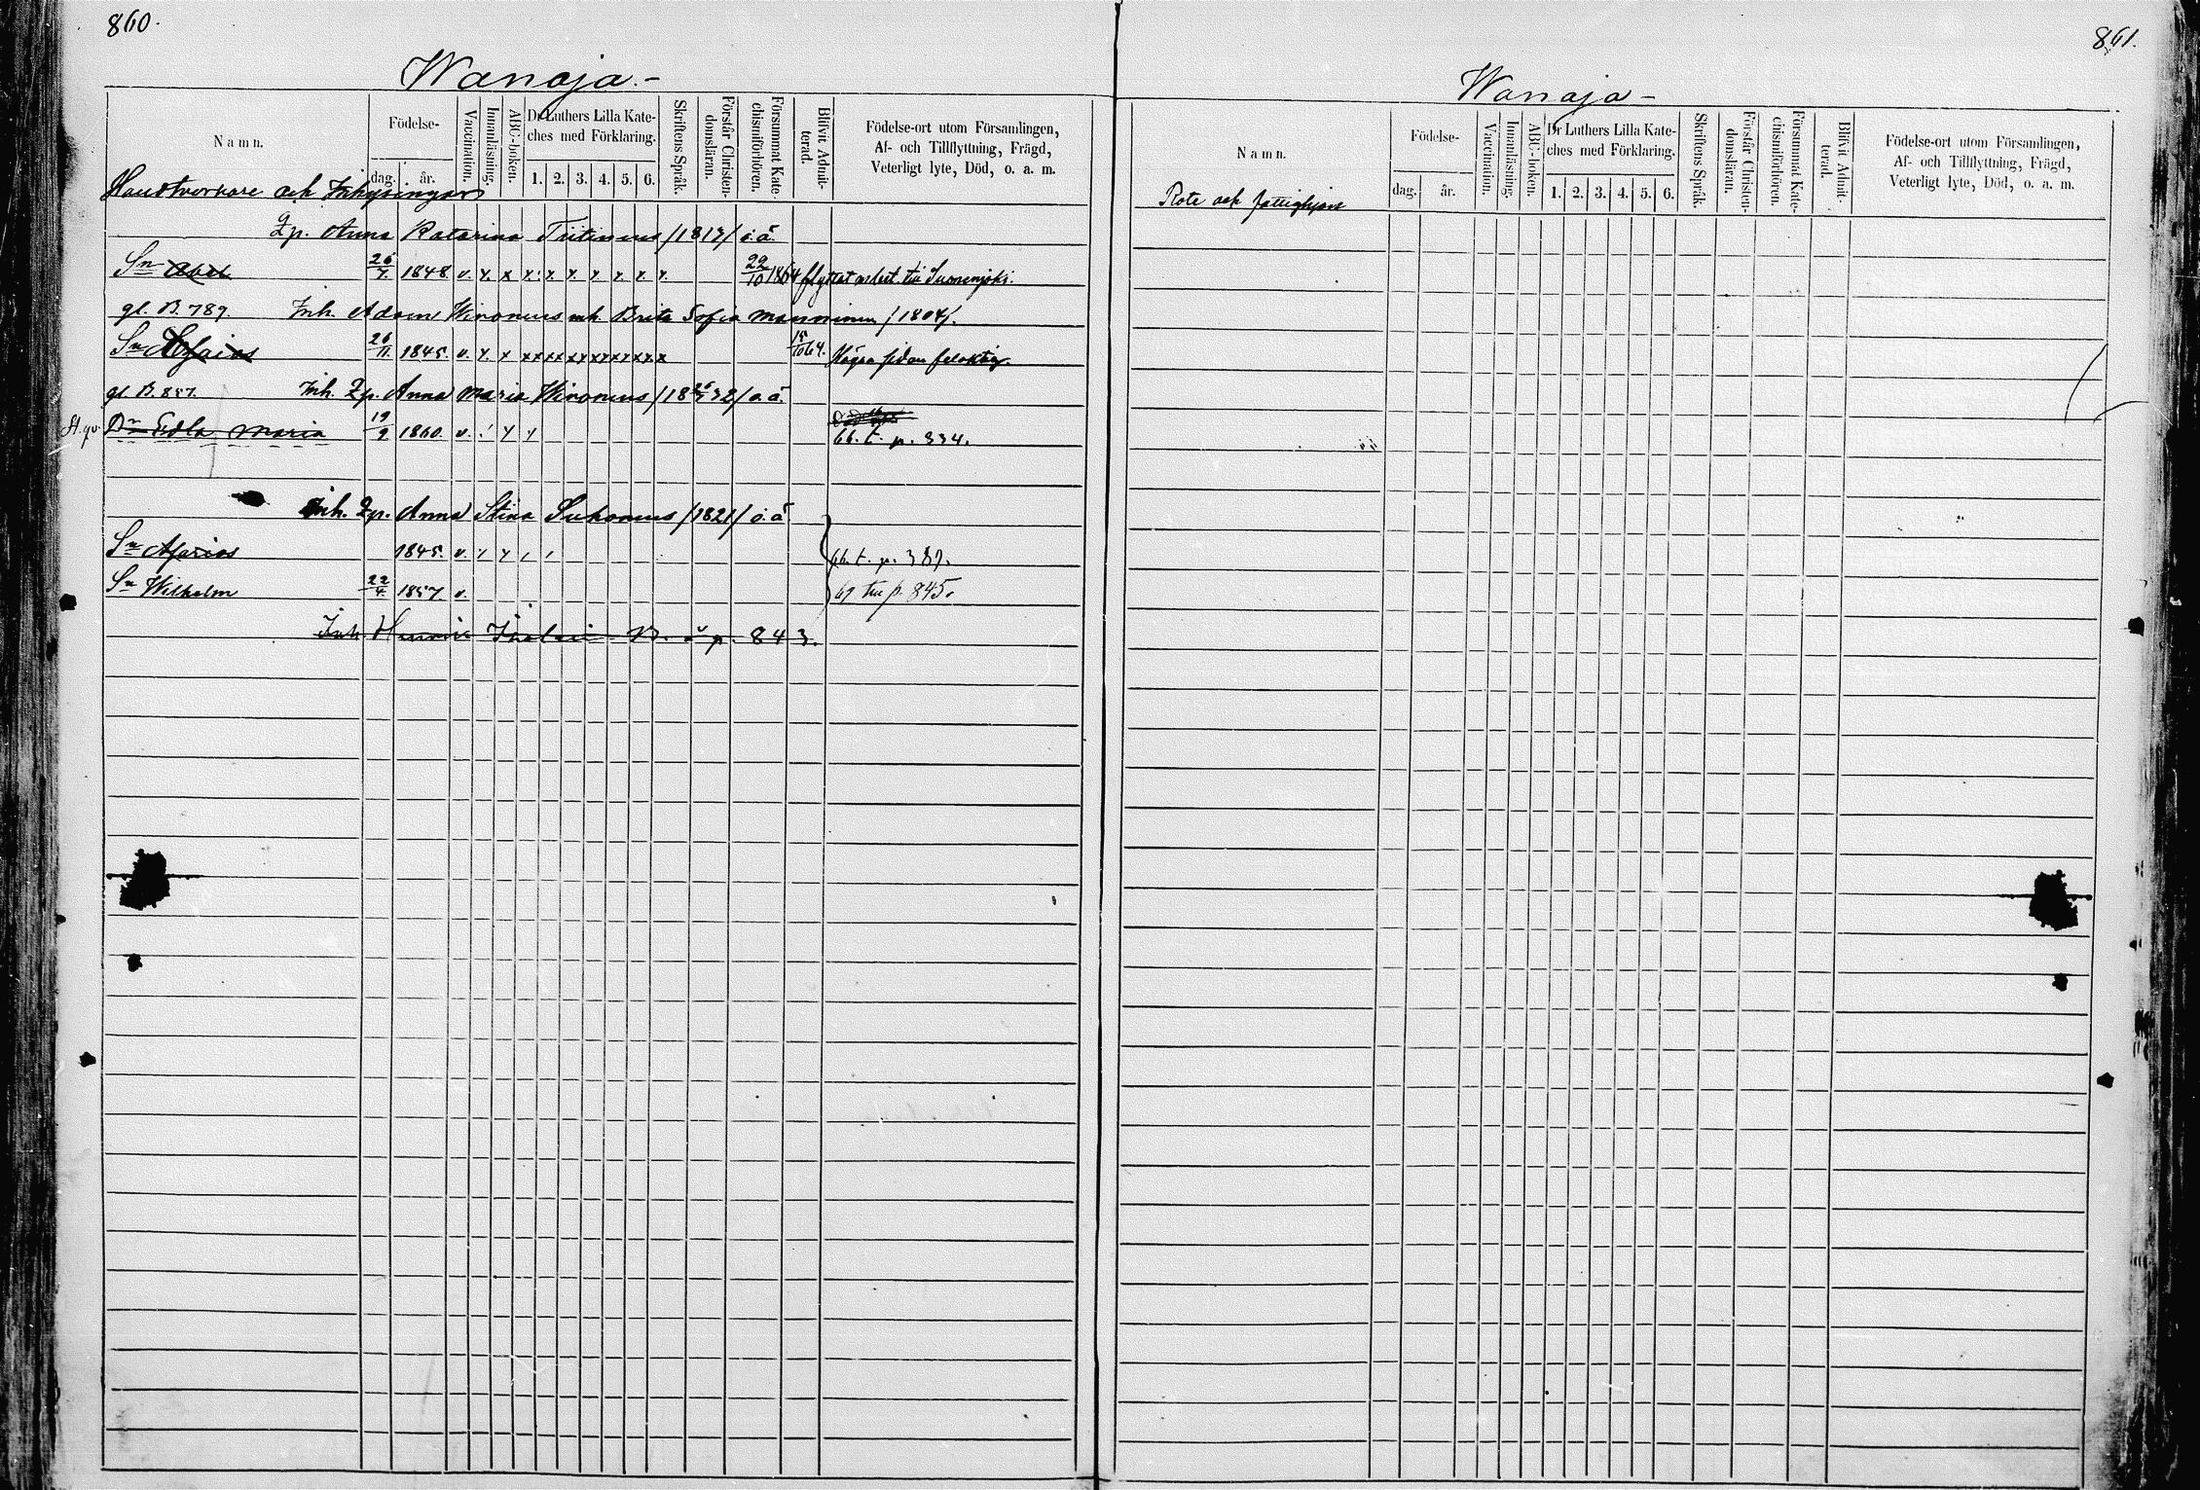 860.
Wanaja.-
Namn.
Födelse-
dag. år.
Vaccination.
Innanläsning.
ABC-boken.
Dr Luthers Lilla Kate-
ches med Förklaring.
1. 2. 3. 4. 5. 6.
Skriftens Språk.
Förstår Christen-
domsläran.
Försummat Kate-
chismiförhören.
Blifvit Admit-
terad.
Födelse-ort utom Församlingen,
Af- och Tillflyttning, Frägd,
Veterligt lyte, Död, o. a. m.
Handtverkare och Inhysingar
Qp. Anna Katarina /1817/ o.ä.
Sn Abel 26/7 1848. v. x x x x x x x x x 22/10 1864 flyttat till Suonenjoki.
gl. B. 789. Inh. Adam Hironens Brita Sofia Manninen /1804/.
Sn 26/11 1845. v. x x xx xx xx xx xx x x 15/10 64. Högra sidan
gl. B. 857. Inh. Qp. Anna Maria Hironens /18 32/ o.ä.
Dr Edla Maria 19/9 1860. v. 66. t. p. 334.
Inh. Qp. Anna Stina Suhonens /1821/ o.ä
Sn Asarias 1845. v. 66. t. p. 387.
Sn Wilhelm 22/4 1857. v. 69 till p. 845.
Inh. p. 843.
861.
Wanaja -
Namn.
Födelse-
dag. år.
Vaccination.
Innanläsning.
ABC-boken.
Dr Luthers Lilla Kate-
ches med Förklaring.
1. 2. 3. 4. 5. 6.
Skriftens Språk.
Förstår Christen-
domsläran.
Försummat Kate-
chismiförhören.
Blifvit Admit-
terad.
Födelse-ort utom Församlingen,
Af- och Tillflyttning, Frägd,
Veterligt lyte, Död, o. a. m.
Rote och fattighjon